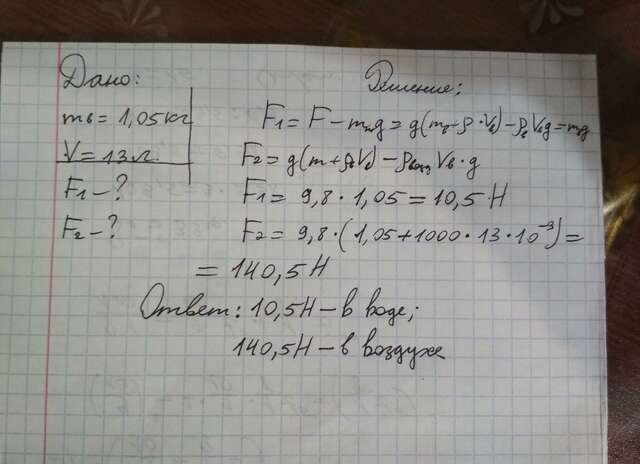 Дано:
mв = 1,05 кг
V = 13 л.
F₁ – ?
F₂ – ?
Решение;
F₁ = F – mₙg = g(mв + ρ · Vв) – ρв Vвg = mвg
F₂ = g(m + ρвVв) – ρвозд Vв · g
F₁ = 9,8 · 1,05 = 10,5 Н
F₂ = 9,8 · (1,05 + 1000 · 13 · 10⁻³) =
= 140,5 Н
Ответ: 10,5Н – в воде;
140,5Н – в воздухе